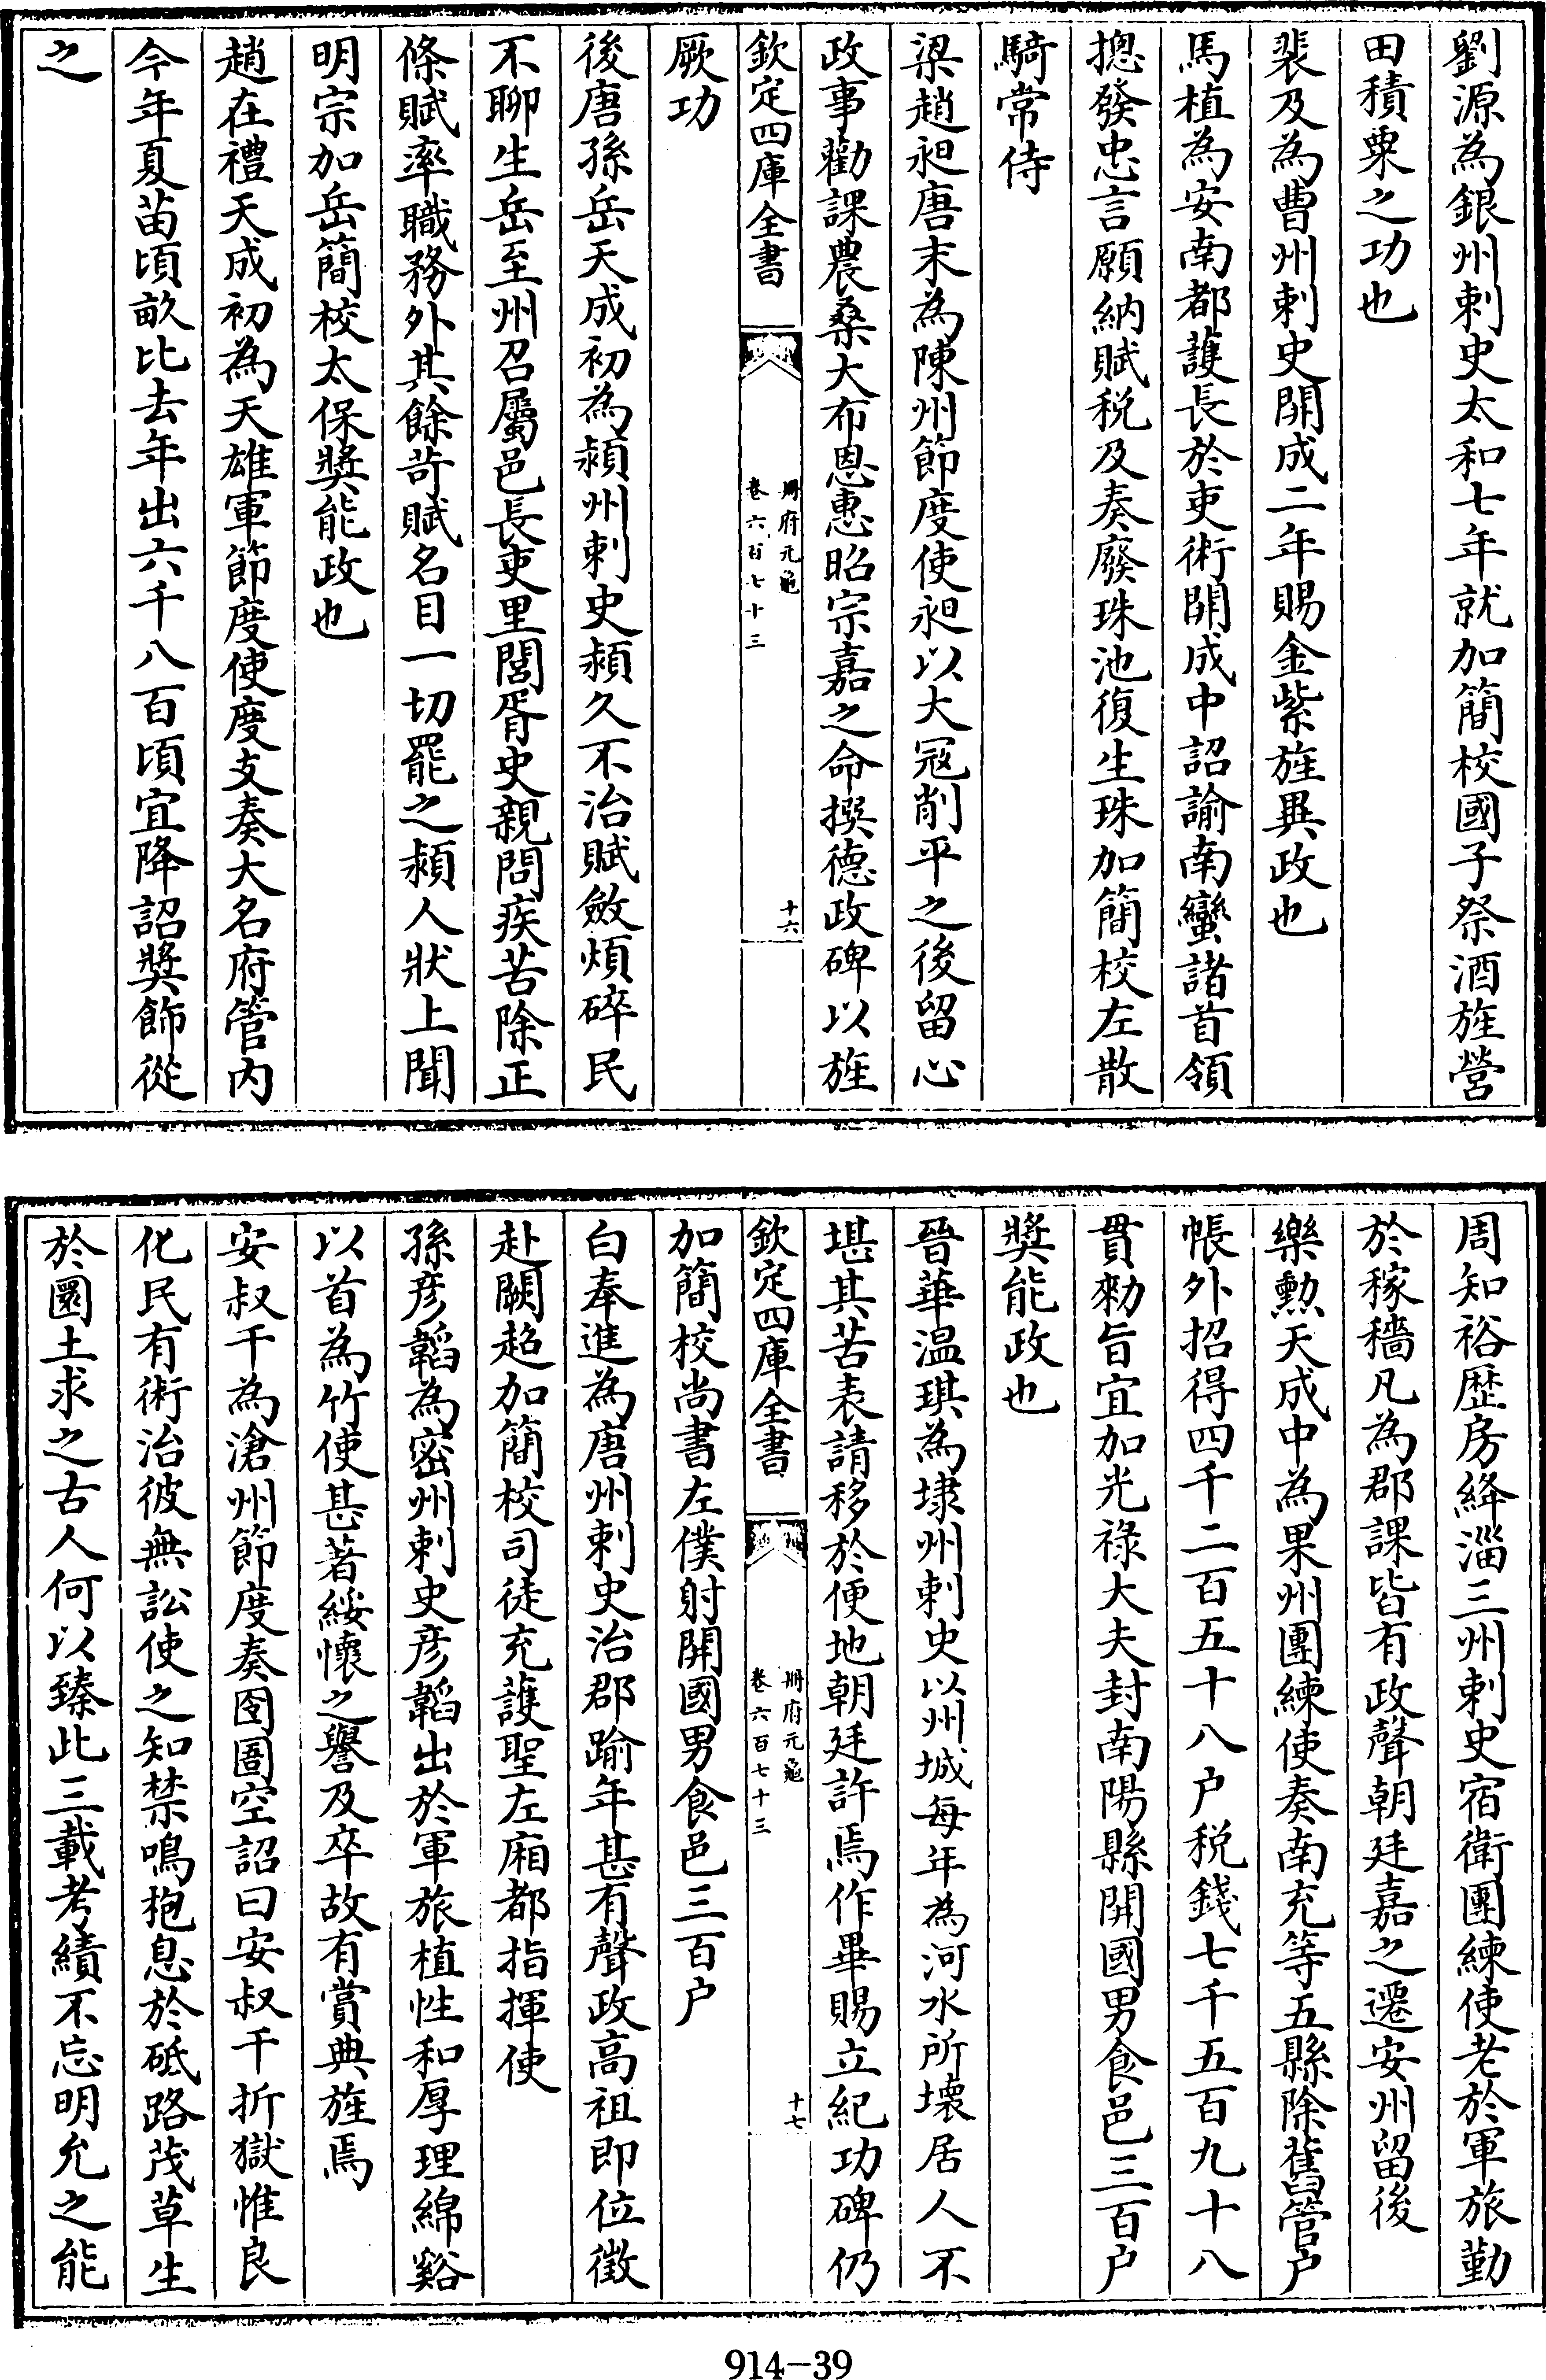 劉源為銀州刺史太和七年就加簡校國子祭酒旌營
田積粟之功也
裴及為曹州刺史開成二年賜金紫旌異政也
馬植為安南都護長於吏術開成中詔諭南蠻諸首領
摠發忠言願納賦税及奏廢珠池復生珠加簡校左散
騎常侍
梁趙昶唐末為陳州節度使昶以大冦削平之後留心
政事勸課農桑大布恩惠昭宗嘉之命撰德政碑以旌
欽定四庫全書
冊府元龜
卷六百七十三
十六
厥功
後唐孫岳天成初為潁州刺史潁久不治賦斂煩碎民
不聊生岳至州召屬邑長吏里閭胥史親問疾苦除正
條賦率職務外其餘苛賦名目一切罷之潁人狀上聞
明宗加岳簡校太保奬能政也
趙在禮天成初為天雄軍節度使度支奏大名府管内
今年夏苗頃畝比去年出六千八百頃宜降詔奬飾從
之
周知裕歴房絳淄三州刺史宿衛團練使老於軍旅勤
於稼穡凡為郡課皆有政聲朝廷嘉之遷安州留後
樂勲天成中為果州團練使奏南充等五縣除舊管户
帳外招得四千二百五十八户税錢七千五百九十八
貫勑旨宜加光祿大夫封南陽縣開國男食邑三百户
奬能政也
晉華温琪為棣州刺史以州城每年為河水所壞居人不
堪其苦表請移於便地朝廷許焉作畢賜立紀功碑仍
欽定四庫全書
冊府元龜
卷六百七十三
十七
加簡校尚書左僕射開國男食邑三百户
白奉進為唐州刺史治郡踰年甚有聲政高祖即位徵
赴闕超加簡校司徒充護聖左廂都指揮使
孫彦韜為密州刺史彦韜出於軍旅植性和厚理綿谿
以首為竹使甚著綏懷之譽及卒故有賞典旌焉
安叔千為滄州節度奏囹圄空詔曰安叔千折獄惟良
化民有術治彼無訟使之知禁鳴抱息於砥路茂草生
於圜土求之古人何以臻此三載考績不忘明允之能
914-39